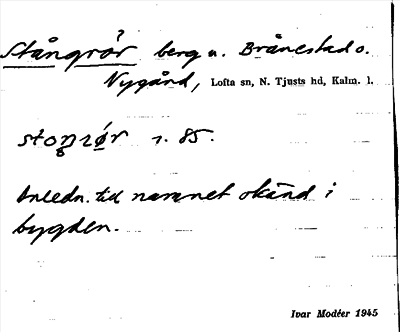 Stångrör berg n. Brånestad o.
Nygård, Lofta sn, N. Tjusts hd, Kalm. l.
r. 85.
Anledn. till namnet okänd i
bygden.
Ivar Modéer 1945